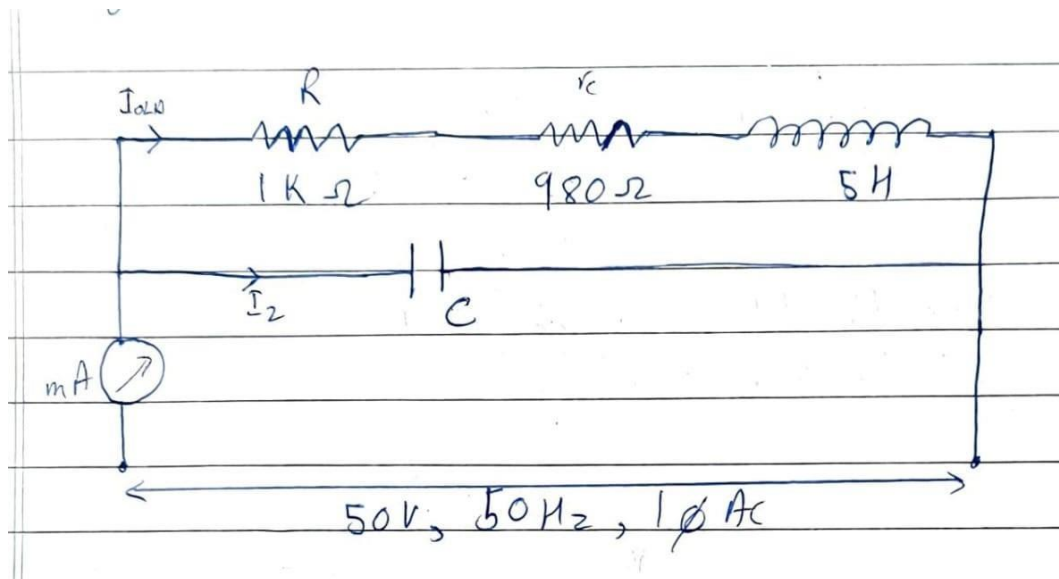 R rc
IOLD
1K Ω 980Ω 5H
I2
C
mA
50V, 50Hz, 1ϕ Ac